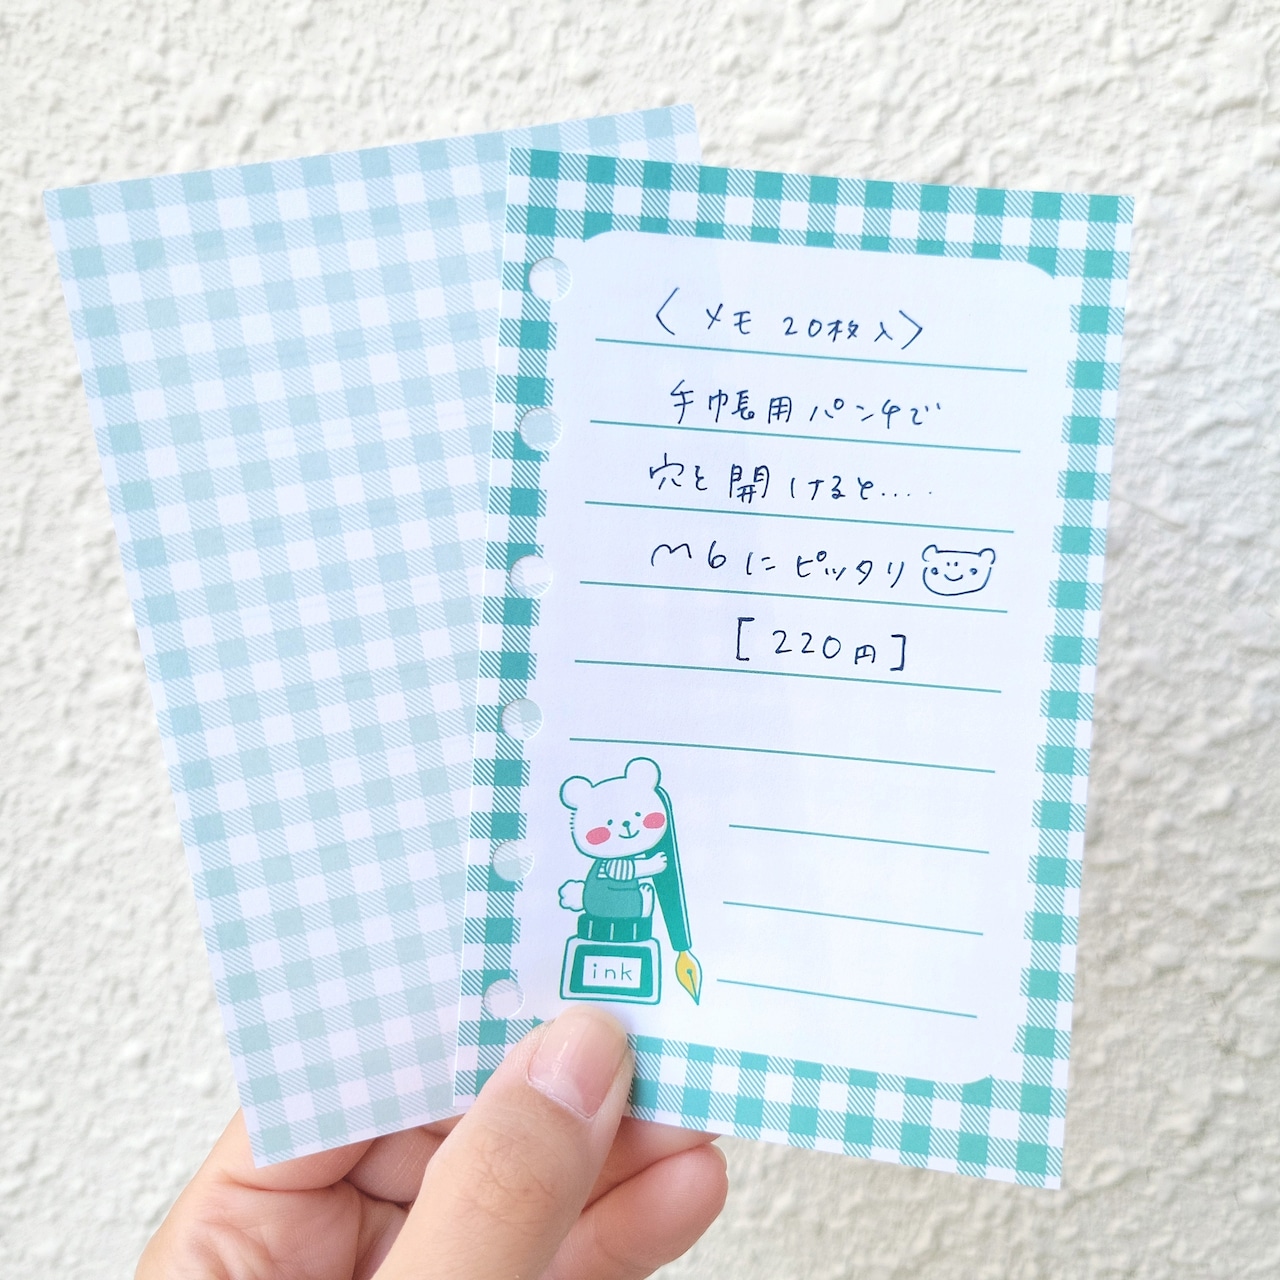 〈メモ 20枚入〉
手帳用パンチで
穴を開けると.....
M6にピッタリ
[220円]
ink